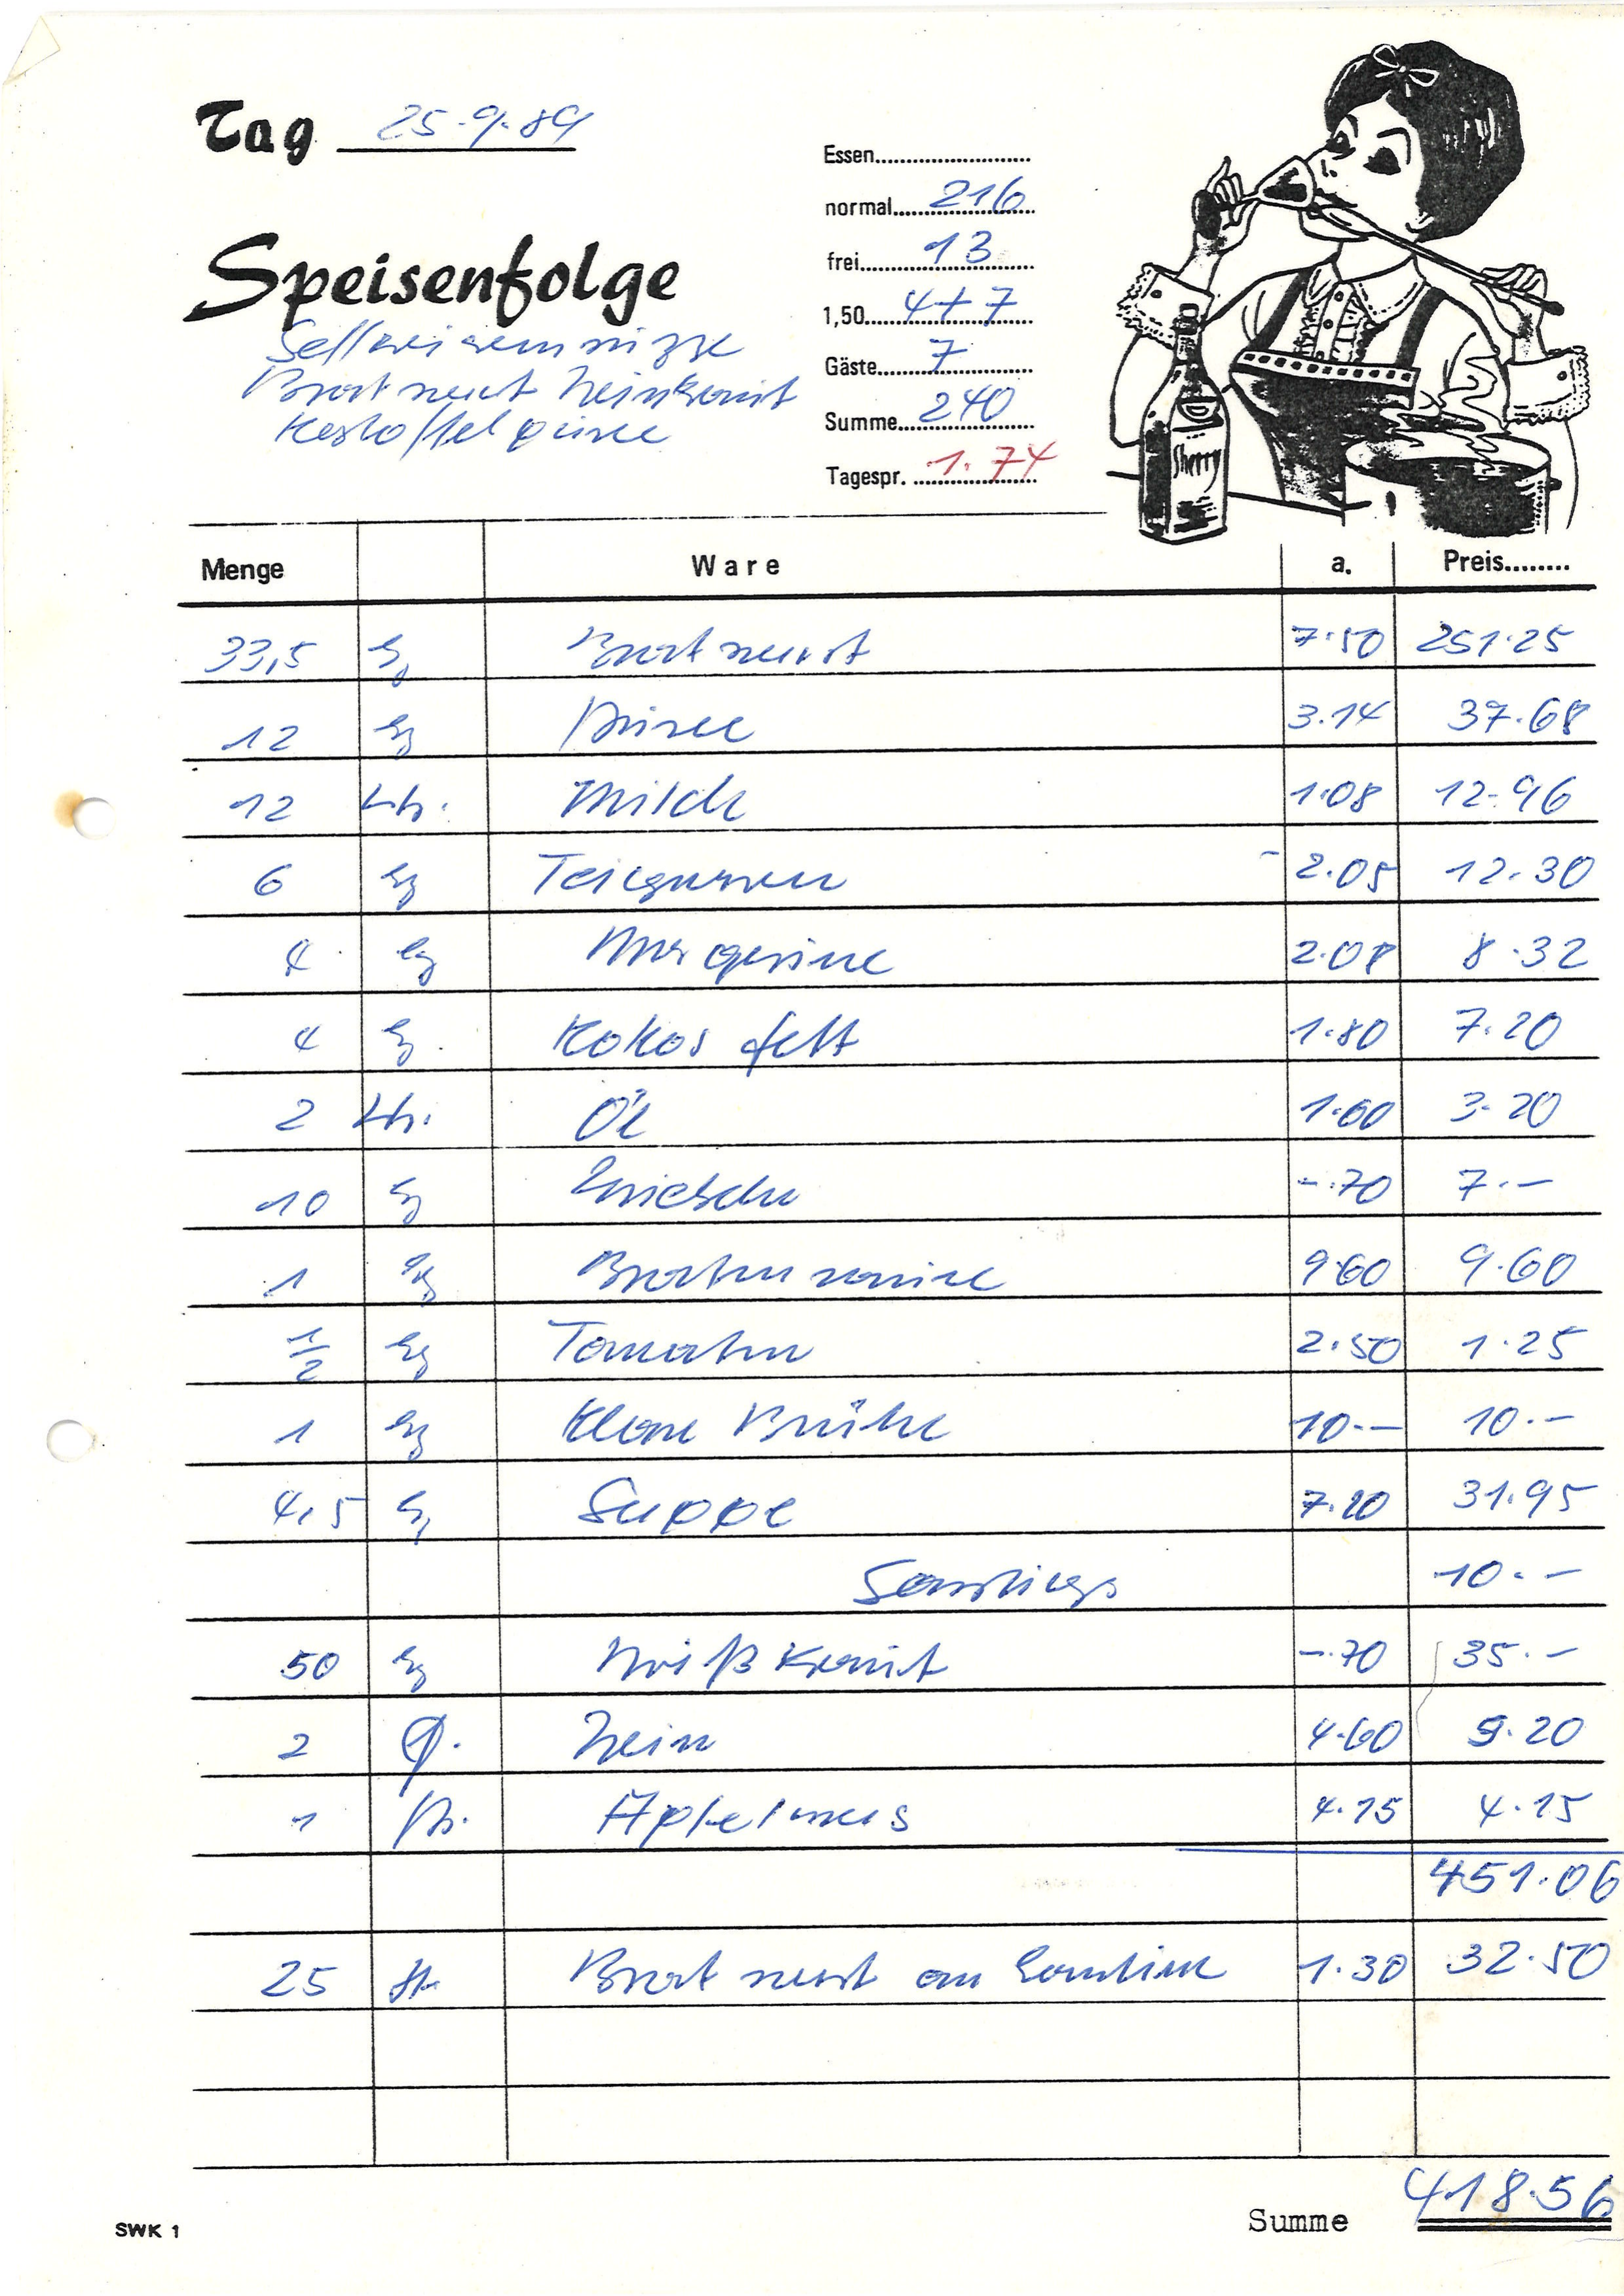 Tag 25.9.89
Essen
normal 216
frei 13
1,50 4+7
Gäste 7
Summe 240
Tagespr. 1.74
Speisenfolge
Bratwurst Weinkraut
Kartoffelpüree
Sherry
Menge Ware a. Preis
33,5 kg Bratwurst 7.50 251.25
12 kg Püree 3.14 37.68
12 Ltr. Milch 1.08 12.96
6 kg Teigwaren 2.05 12.30
4 kg Margarine 2.08 8.32
4 kg Kokosfett 1.80 7.20
2 Ltr. Öl 1.60 3.20
10 kg Zwiebeln -.70 7.-
1 kg Bratensauce 9.60 9.60
1/2 kg Tomaten 2.50 1.25
1 kg Klare Brühe 10.- 10.-
4,5 kg Suppe 7.10 31.95
Sonstiges 10.-
50 kg Weißkraut -.70 35.-
2 Fl. Wein 4.60 9.20
1 Apfelmus 4.15 4.15
451.06
25 St. Bratwurst an Kantine 1.30 32.50
Summe 418.56
SWK 1